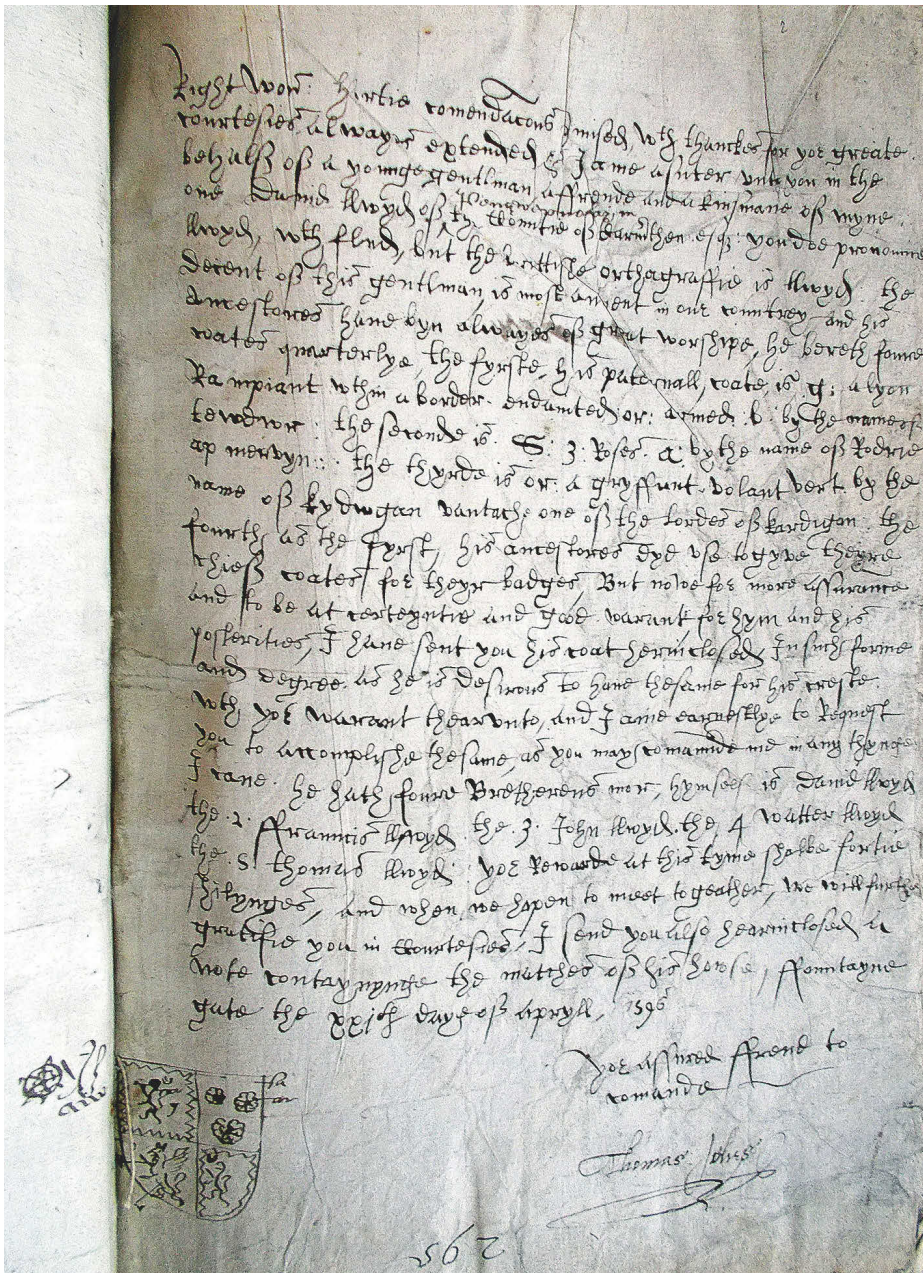 Right wor: hirtie comendacons p̱mised, wth thanckes for yor greate
courtesies alwayes extended &c I ame a suter unto you in the
behalff off a younge gentlman a ffrende and a kinsmane off myne
one David llwyd off
the Countie off Karmthen esq: you doe pronounce
llwyd, wth fflud, but the brittishe orthagraffie is llwyd. the
decent off this gentlman is most ancient in our countrey and his
Ancestores have byn alwayes off great worshipe, he bereth foure
coates quarterlye, the fyrste, his paternall, coate, is g: a lyon
Rampiant wthin a border endented or: armed b: by the name of
tewdwr: the seconde is S: 3: Roses a: by the name off Rodric
ap mervyn: the thyrde is or: a gryffunt volant vert by the
name off Kydwgan vantache one off the lordes off Kardigon: the
fourth as the fyrst, his ancestores dyd use to gyve theyre
chieff coates for theyr badges, But nowe for more assurance
and to be at certeyntie and good warant for hym and his
posterities, I have sent you his coat herinclosed, In such forme
and degree as he is desirous to have the same for his creste
wth yor warant thearunto, and I ame earnestlye to Request
you to accomplishe the same, as you may comaunde me in any thynge
I cane. he hath foure Bretherens mor, hymself is David llwyd
the .2. ffrauncis llwyd. the .3. John llwyd. the, 4 watter llwyd
the .5. thomas llwyd: yor Rewarde at this tyme shalbe fortie
shilynges, and when we hapen to meet togeather, we will further
gratifie you in Courtesies, I send you also hearinclosed a
note contaynynge the matches off his howse, ffountayne
gate the xxith daye off Apryll, 1596
yor assured ffrend to
comande
Thomas Johns
sa
ar
562